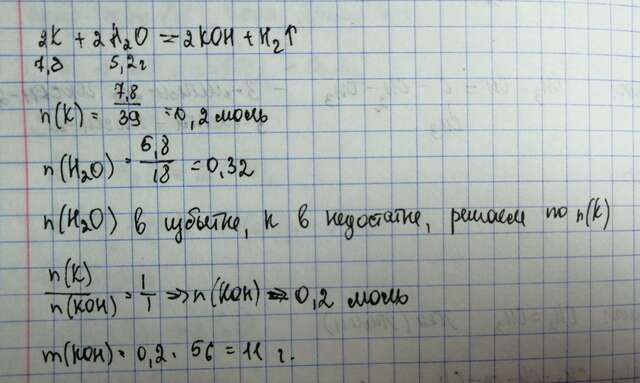 2K + 2H₂O = 2KOH + H₂↑
7,8 5,2г
n(K) = 7,8/39 = 0,2 моль
n(H₂O) = 5,8/18 = 0,32
n(H₂O) в избытке, K в недостатке, решаем по n(K)
n(K)/n(KOH) = 1/1 => n(KOH) = 0,2 моль
m(KOH) = 0,2 · 56 = 11 г.